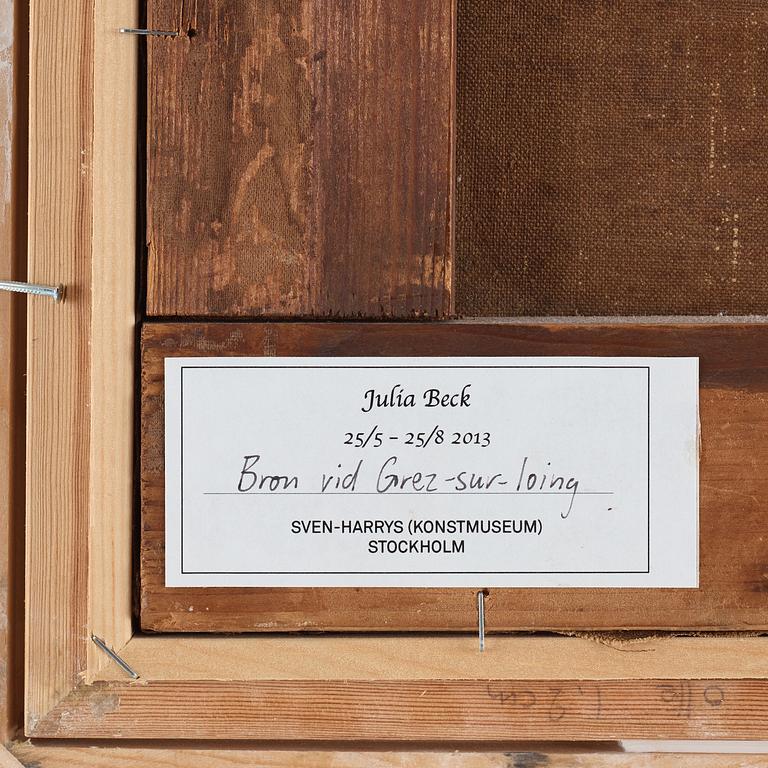 Julia Beck
25/5 – 25/8 2013
Bron vid Grez-sur-loing
SVEN-HARRYS (KONSTMUSEUM)
STOCKHOLM
1,2 cm